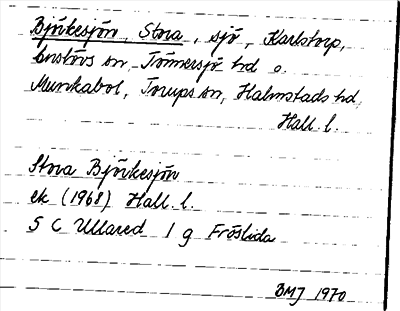 Björkesjön, Stora, sjö, Karlstorp,
Enslövs sn, Tönnersjö hd o.
Munkabol, Torups sn, Halmstads hd,
Hall. l.
Stora Björkesjön
ek (1968) Hall. l.
5 C Ullared 1 g Fröslida
BMJ 1970